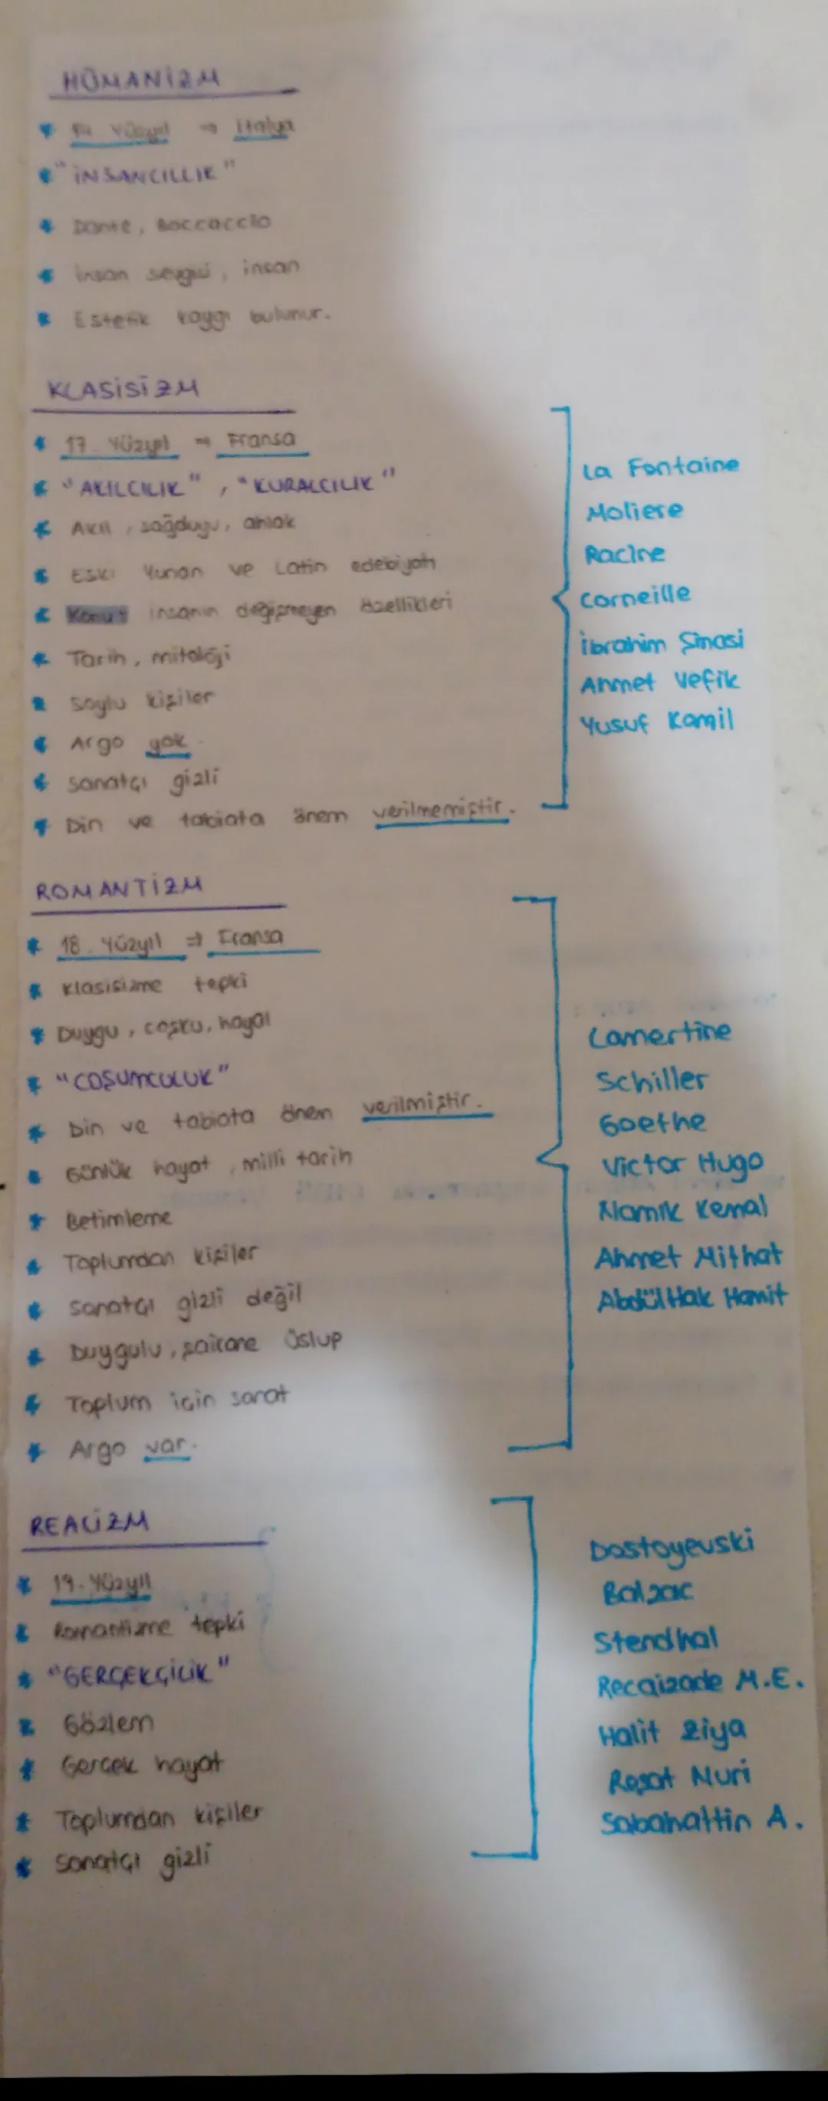 HÜMANİZM
14. Yüzyıl ⇒ İtalya
"İNSANCILLIK"
Dante, Boccaccio
İnsan sevgisi, insan
Estetik kaygı bulunur.
KLASİSİZM
17. Yüzyıl ⇒ Fransa
"AKILCILIK", "KURALCILIK"
Akıl, sağduyu, ahlak
Eski Yunan ve Latin edebiyatı
Konu: insanın değişmeyen özellikleri
Tarih, mitoloji
Soylu kişiler
Argo yok.
Sanatçı gizli
Din ve tabiata önem verilmemiştir.
La Fontaine
Moliere
Racine
Corneille
İbrahim Şinasi
Ahmet Vefik
Yusuf Kamil
ROMANTİZM
18. Yüzyıl ⇒ Fransa
Klasisizme tepki
Duygu, coşku, hayal
"COŞUMCULUK"
Din ve tabiata önem verilmiştir.
Günlük hayat, milli tarih
Betimleme
Toplumdan kişiler
Sanatçı gizli değil
Duygulu, şairane üslup
Toplum için sanat
Argo var.
Lamertine
Schiller
Goethe
Victor Hugo
Namık Kemal
Ahmet Mithat
Abdülhak Hamit
REALİZM
19. Yüzyıl
Romantizme tepki
"GERÇEKÇİLİK"
Gözlem
Gerçek hayat
Toplumdan kişiler
Sanatçı gizli
Dostoyevski
Balzac
Stendhal
Recaizade M.E.
Halit Ziya
Reşat Nuri
Sabahattin A.